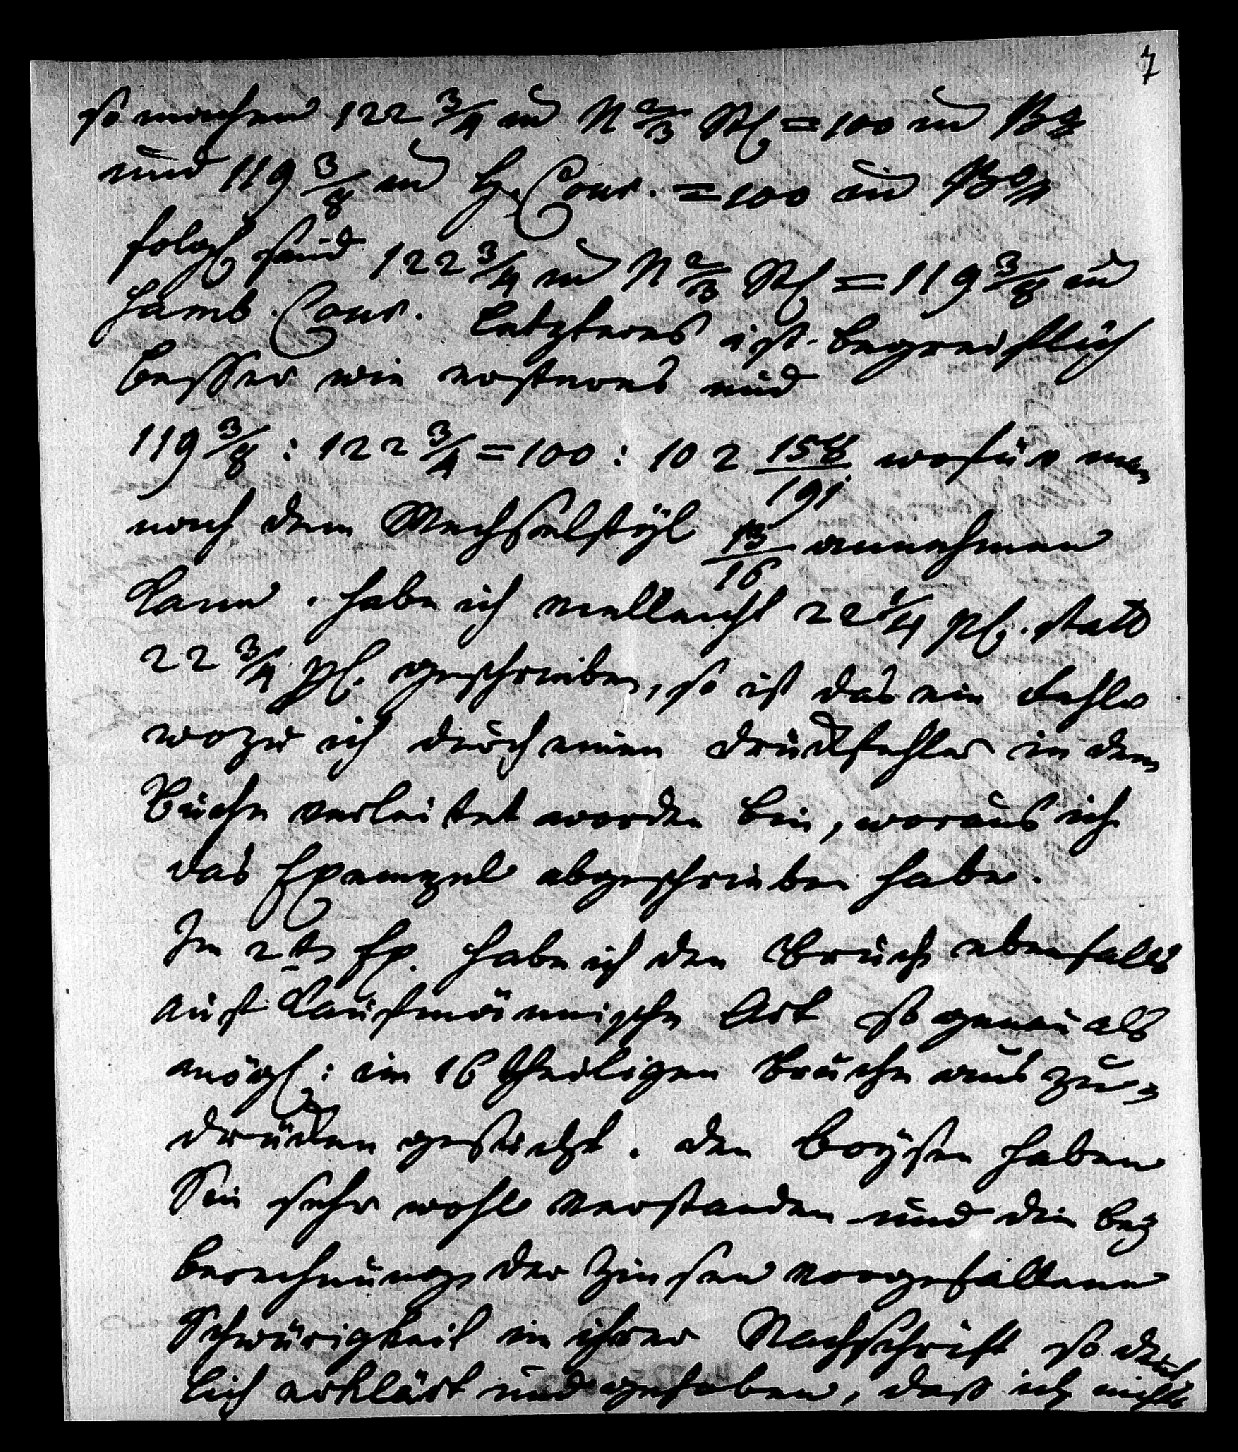 7
so machen 122 3/4 in N 2/3 Rthl = 100 in Bco
und 119 3/8 in H. Cour. = 100 in Bco
folgl sind 122 3/4 in N 2/3 Rthl = 119 3/8 in
Hamb. Cour. Letzteres ist begreiflich
besser wie ersteres und
119 3/8 : 122 3/4 = 100 : 102 158/191 wofür man
nach dem Wechselstyl 13/16 annehmen
kann. Habe ich vielleicht 22 1/4 pC. statt
22 3/4 pC. geschrieben, so ist das ein Fehler
wozu ich durch einen Druckfehler in dem
Buche verleitet worden bin, woraus ich
das Exempel abgeschrieben habe.
Im 2ten Ex. habe ich den Bruch ebenfalls
auf kaufmännische Art so genau als
mögl: in 16 theiligen Brüche aus zu-
drücken gesucht. Den Boysen haben
Sie sehr wohl verstanden und die bey
Berechnung der Zinsen vorgefallene
Schwürigkeit in ihrer Nachschrift so deut
lich erklärt und gehoben, daß ich nichts